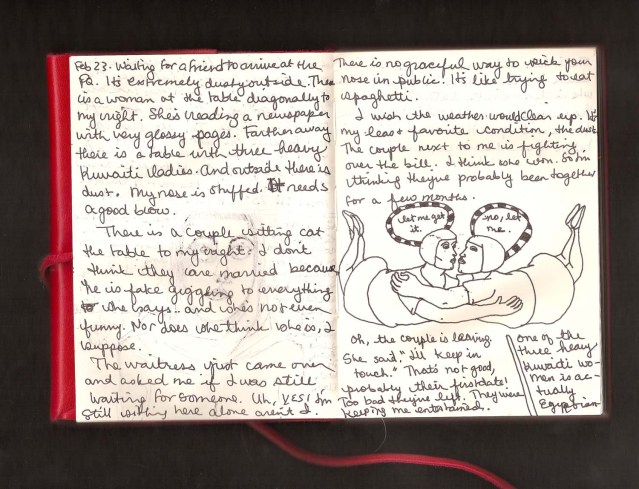 Feb 23. Waiting for a friend to arrive at the
PQ. It's extremely dusty outside. There
is a woman at the table diagonally to
my right. She's reading a newspaper
with very glossy pages. Farther away
there is a table with three heavy
Kuwaiti ladies. And outside there is
dust. My nose is stuffed. It needs
a good blow.
There is a couple sitting at
the table to my right. I don't
think they are married because
he is fake giggling to everything
she says.. and she's not even
funny. Nor does she think she is, I
suppose.
The waitress just came over
and asked me if I was still
waiting for someone. Uh, YES! I'm
still sitting here alone aren't I.
There is no graceful way to pick your
nose in public. It's like trying to eat
spaghetti.
I wish the weather would clear up. It's
my least favorite condition, the dust.
The couple next to me is fighting
over the bill. I think she won. So I'm
thinking they've probably been together
for a few months.
let me get
it.
no, let
me.
Oh, the couple is leaving.
She said, "I'll keep in
touch." That's not good,
probably their first date!
Too bad they've left. They were
keeping me entertained.
one of the
three heavy
Kuwaiti wo-
men is ac-
tually
Egyptian